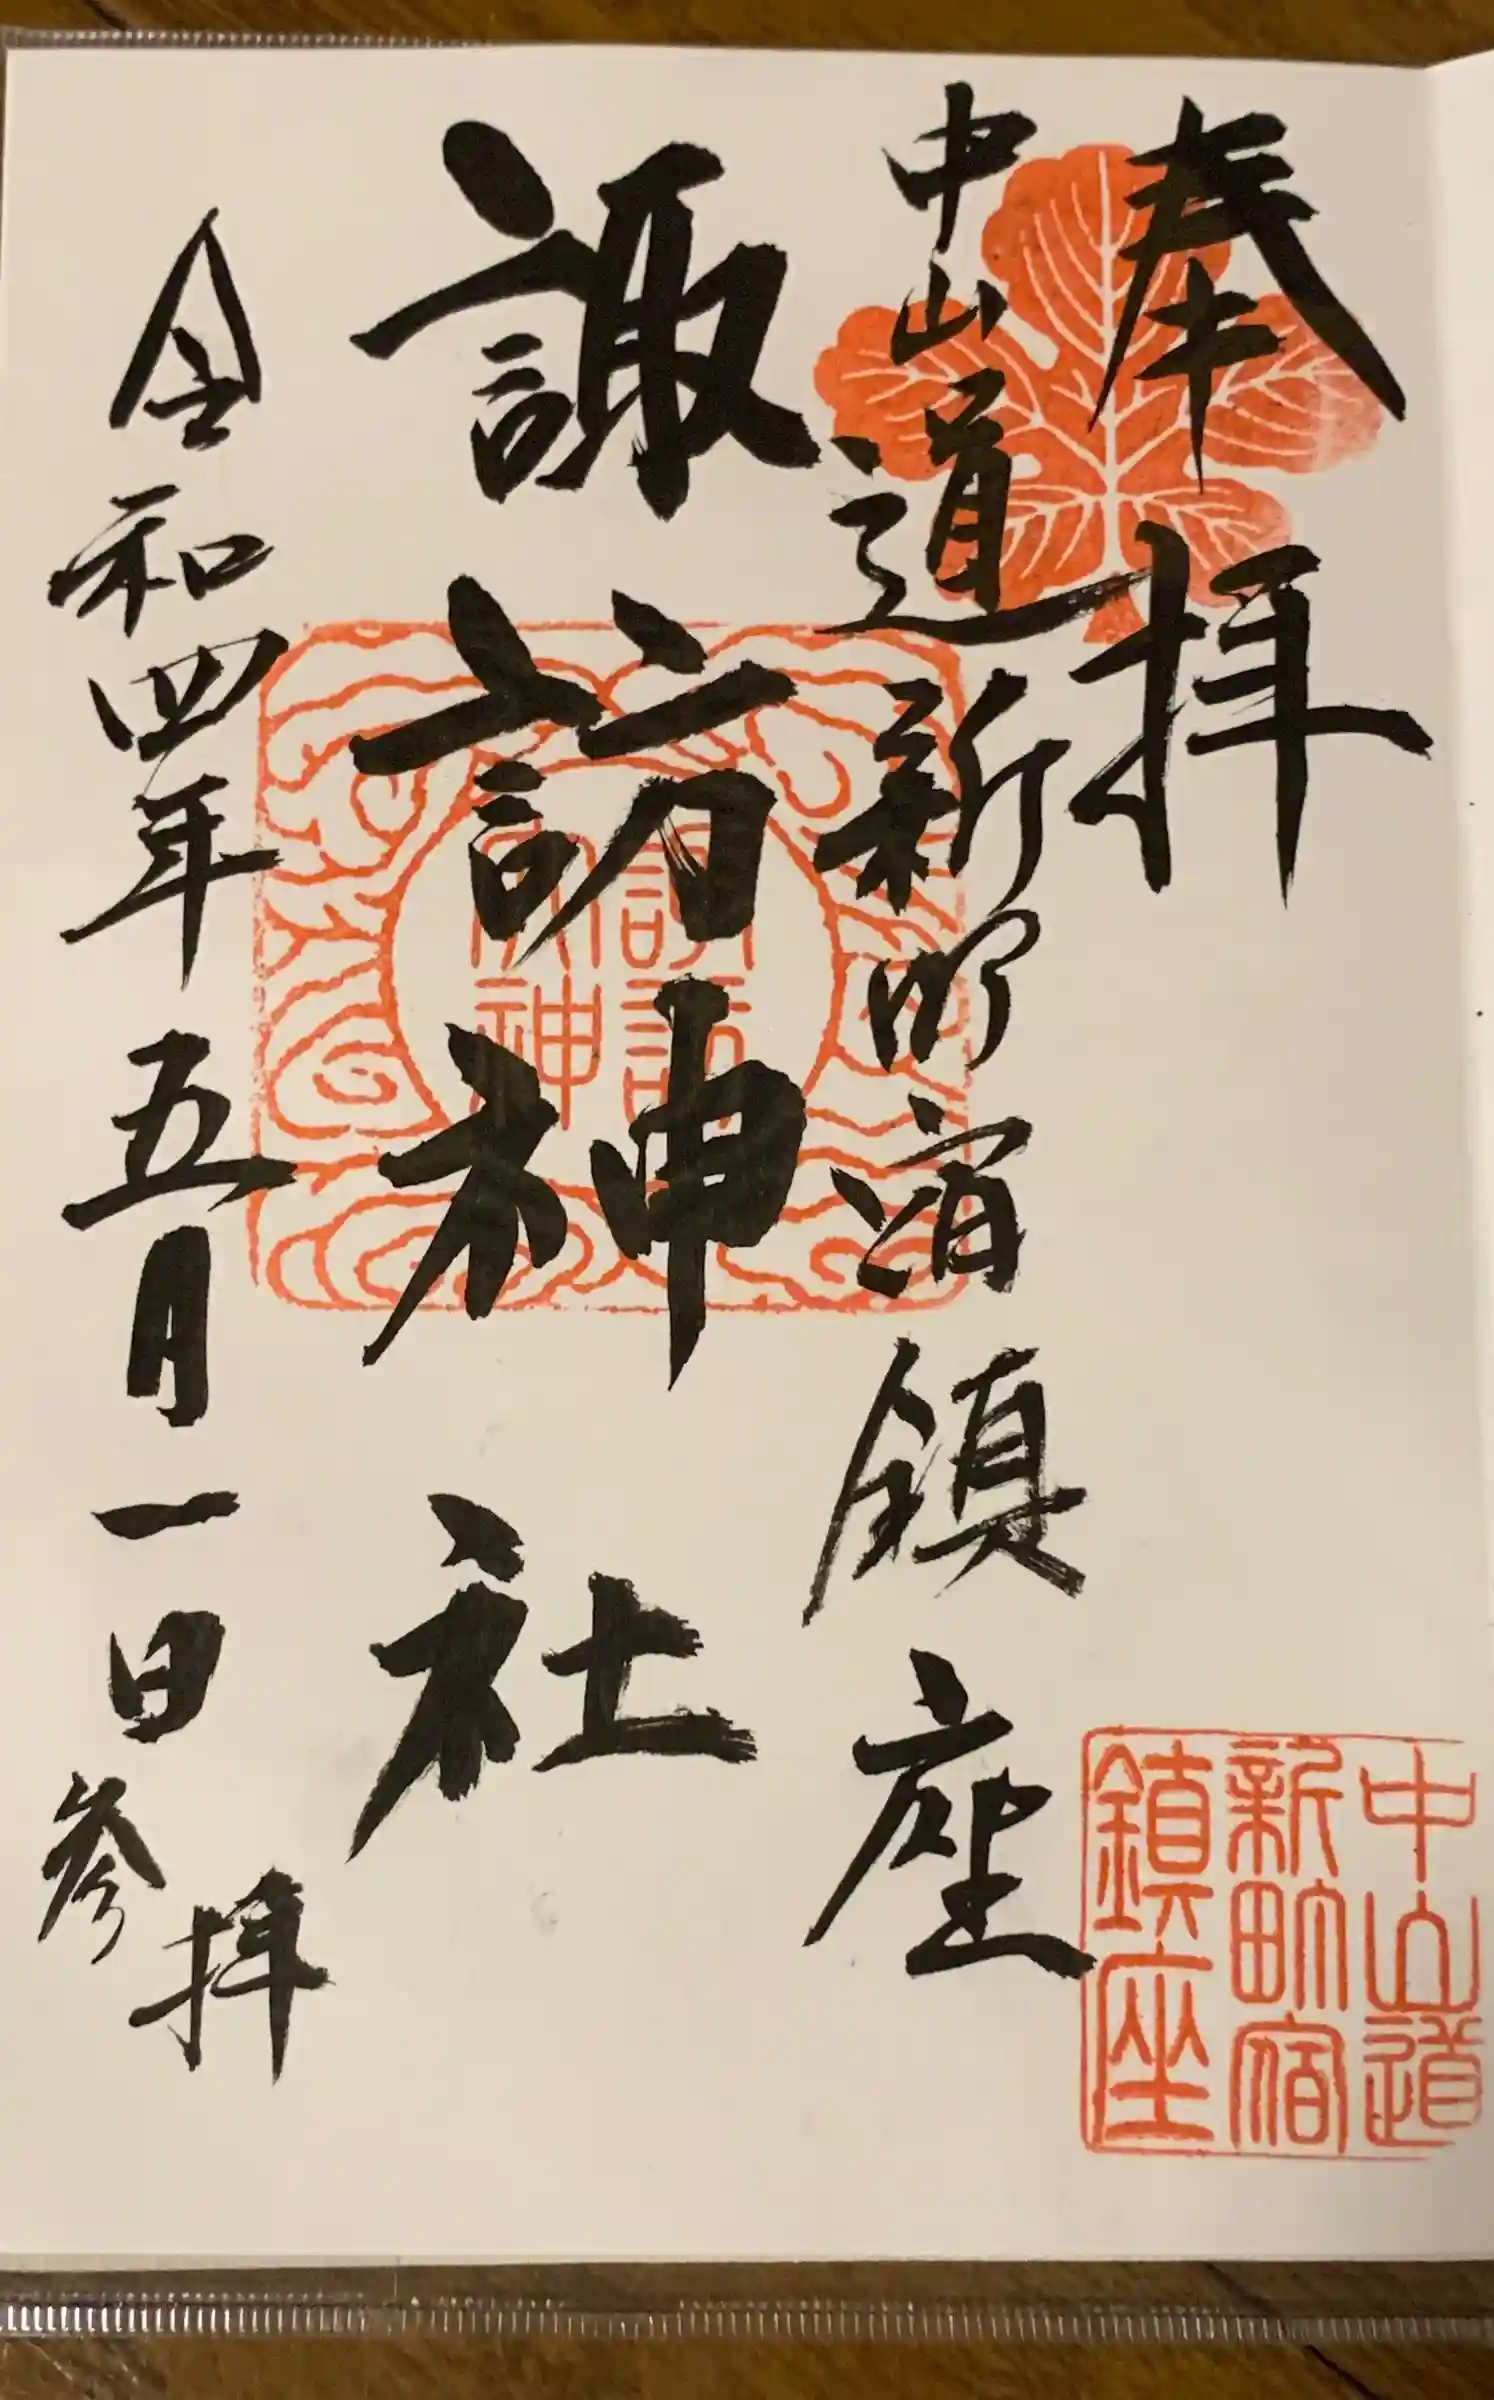 奉拝
中山道新町宿鎮座
諏訪神社
令和四年五月一日参拝
中山道
新町宿
鎮座
諏訪
大神